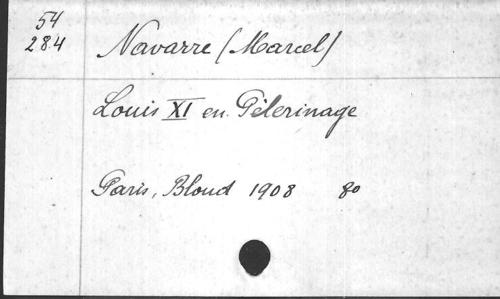 54
284
Navarre (Marcel)
Louis XI en Pèlerinage
Paris, Bloud 1908 8o